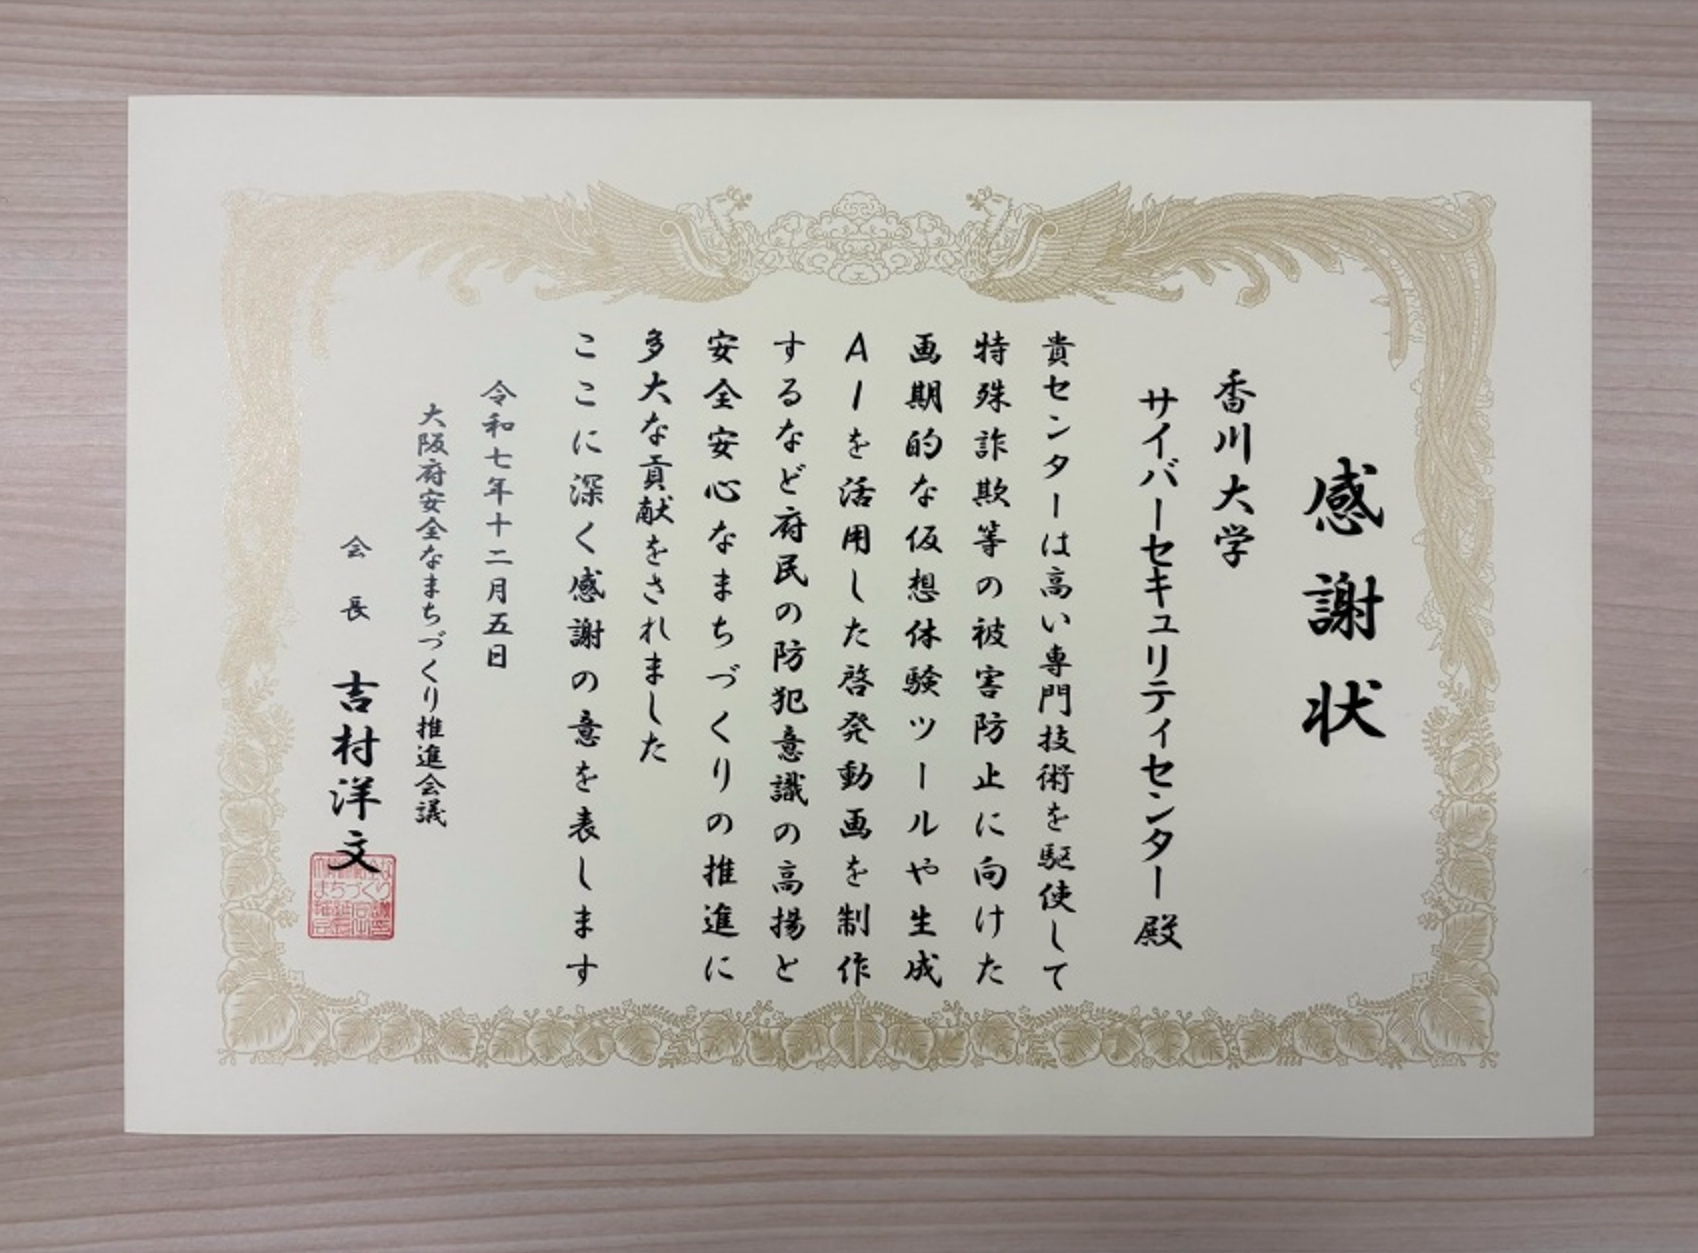 感謝状
香川大学
サイバーセキュリティセンター殿
貴センターは高い専門技術を駆使して
特殊詐欺等の被害防止に向けた
画期的な仮想体験ツールや生成
AIを活用した啓発動画を制作
するなど府民の防犯意識の高揚と
安全安心なまちづくりの推進に
多大な貢献をされました
ここに深く感謝の意を表します
令和七年十二月五日
大阪府安全なまちづくり推進会議
会長 吉村洋文